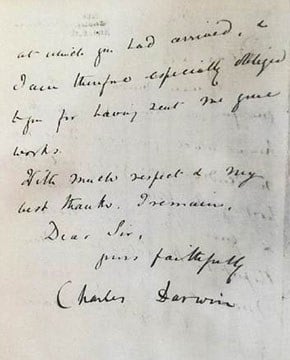 at which you had arrived, &
I am therefore especially obliged
to you for having sent me your
works.
With much respect & my
best thanks. I remain.
Dear Sir,
yours faithfully
Charles Darwin